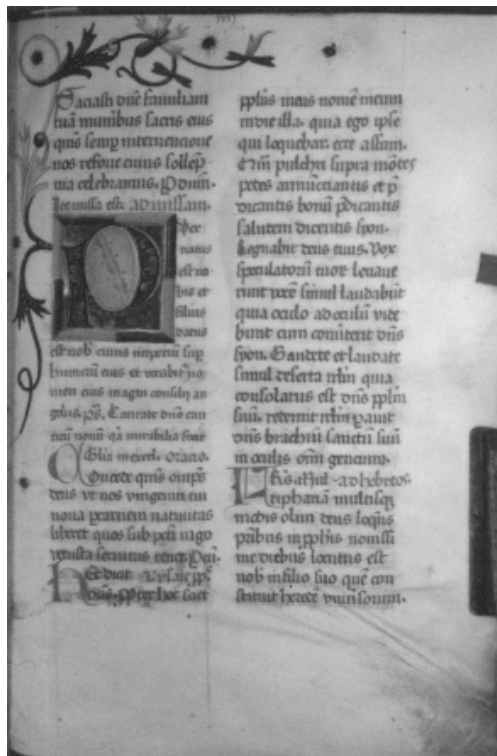 Saciasti dne familiam
tuã muneribus sacris eius
q̃s semp interuencione
nos refoue cuius sollep
nia celebramus. P dnm.
Ite missa est. ad missam.
Puer
natus
est no
bis et
filius
datus
est nob cuius imperiũ sup
humerũ eius et vocabit no
men eius magni consilij an
gelus. p̃s. Cantate dño can
ticũ nouũ q̃a mirabilia fecit
Glia in excel. Oracio.
Concede q̃s omp̃s
deus vt nos vnigeniti tui
noua p carnem natiuitas
liberet quos sub peti iugo
vetusta seruitus tenet. P eũ.
Hec dicit ysaie pp̃
dñs. ppter hoc sciet
pplũs meus nomẽ meum
in die illa. quia ego ipse
qui loquebar. ecce assum.
Qm̃ pulchri supra mõtes
pedes annũctiantis et p̃
dicantis bonũ p̃dicantis
salutem dicentis syon.
Regnabit deus tuus. Vox
speculatorũ tuor leuaue
runt vocẽ simul laudabũt
quia oculo ad oculũ vide
bunt cum conũterit dñs
syon. Gaudete et laudate
simul deserta irlm̃ quia
consolatus est dñs pplm̃
suũ. redemit irlm̃ parauit
dñs brachiũ sanctũ suũ
in oculis om̃i gencium.
ad hebreos.
tiphariã multisq̃
modis olim deus loquẽs
pribus in pphis nouissi
me diebus locutus est
nob in filio suo quẽ con
stituit heredẽ vniũsorum.